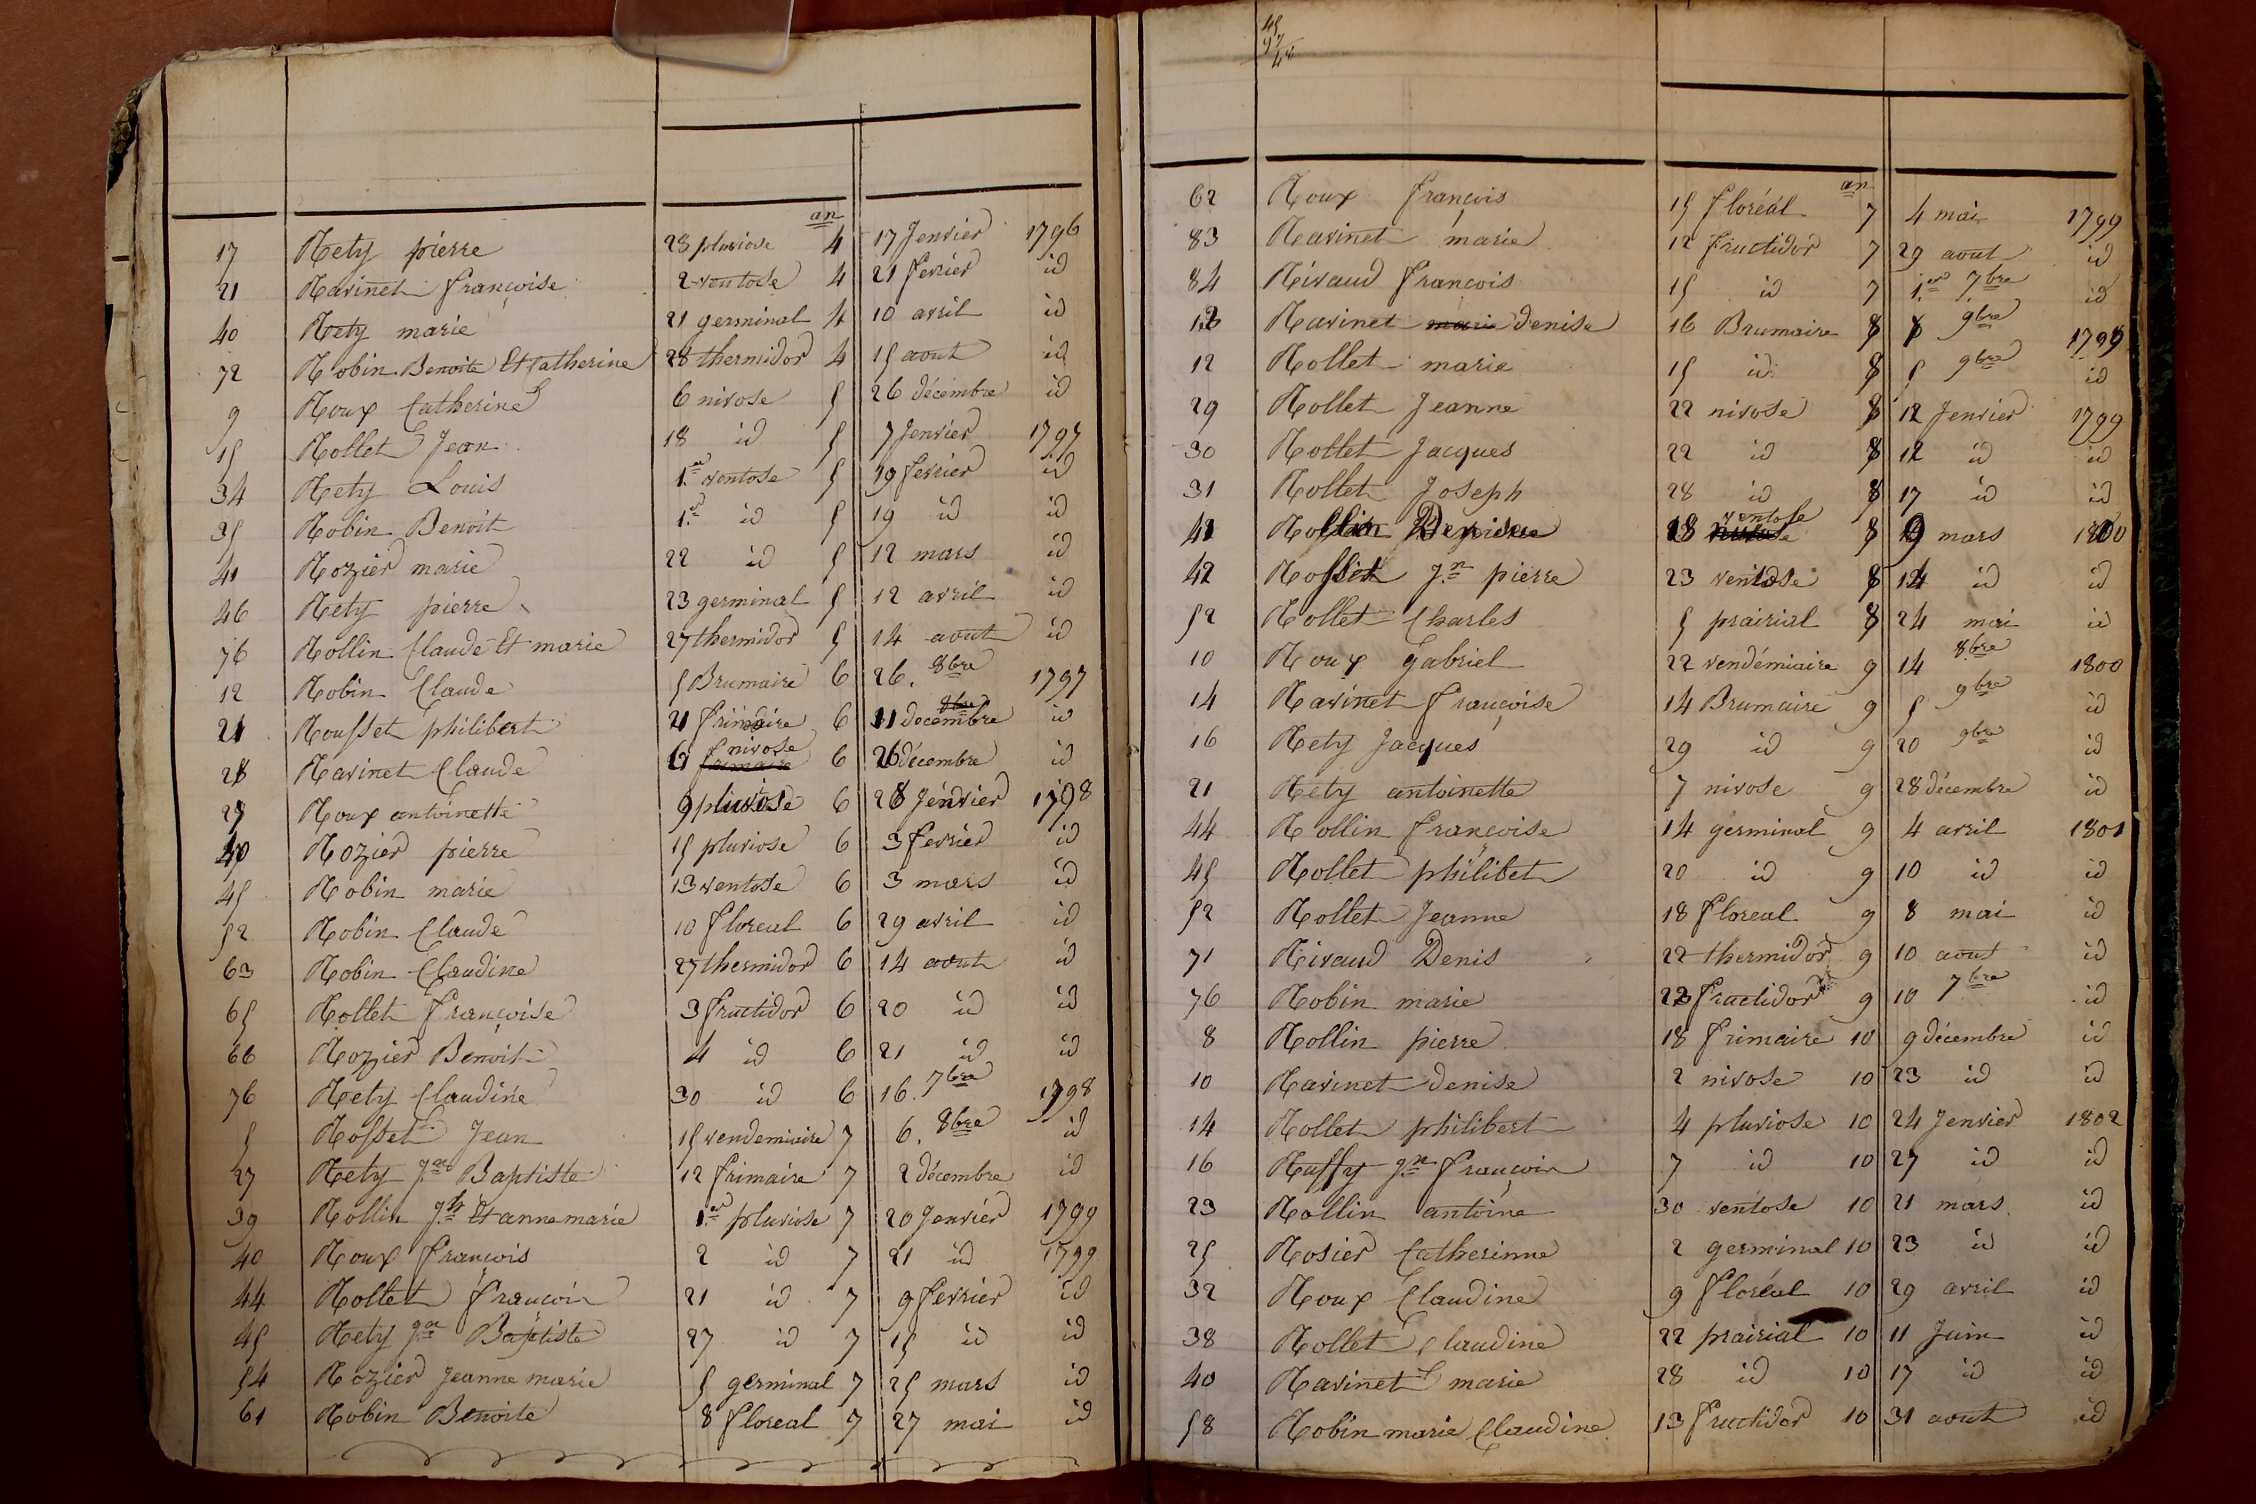 an
17 Rety pierre 28 pluviose 4 17 Jenvier 1796
21 Ravinet françoise 2 ventose 4 21 fevrier id
40 Rety marie 21 germinal 4 10 avril id
72 Robin Benoite Et Catherine 28 thermidor 4 15 aout id
9 Roux Catherine 6 nivose 5 26 décembre id
15 Rollet Jean 18 id 5 7 Jenvier 1797
34 Rety Louis 1.er ventose 5 19 fevrier id
35 Robin Benoit 1.er id 5 19 id id
41 Rozier marie 22 id 5 12 mars id
46 Rety pierre 23 germinal 5 12 avril id
76 Rollin Claude Et marie 27 thermidor 5 14 aout id
12 Robin Claude 5 Brumaire 6 26. 8bre 1797
21 Rousset philibert 21 frimaire 6 11 decembre id
28 Ravinet Claude 6 nivose 6 26 décembre id
29 Roux antoinette 9 pluviose 6 28 Jenvier 1798
40 Rozier pierre 15 pluviose 6 3 fevrier id
45 Robin marie 13 ventose 6 3 mars id
52 Robin Claude 10 floreal 6 29 avril id
63 Robin Claudine 27 thermidor 6 14 aout id
65 Rollet françoise 3 fructidor 6 20 id id
66 Rozier Benoit 4 id 6 21 id id
76 Rety Claudine 30 id 6 16. 7bre 1798
5 Rosset Jean 15 vendemiaire 7 6. 8bre id
27 Rety Jn Baptiste 12 frimaire 7 2 décembre id
39 Rollin Jh Et anne marie 1.er pluviose 7 20 Jenvier 1799
40 Roux françois 2 id 7 21 id 1799
44 Rollet françois 21 id 7 9 fevrier id
45 Rety Jn Baptiste 27 id 7 15 id id
54 Rozier Jeanne marie 5 germinal 7 25 mars id
61 Robin Benoite 8 floreal 7 27 mai id
an
62 Roux françois 15 floréal 7 4 mai 1799
83 Ravinet marie 12 fructidor 7 29 aout id
84 Rivaud françois 15 id 7 1.er 7bre id
Ravinet marie denise 16 Brumaire 8 9bre 1799
12 Rollet marie 15 id 8 5 9bre id
29 Rollet Jeanne 22 nivose 8 12 Jenvier 1799
30 Rollet Jacques 22 id 8 12 id id
31 Rollet Joseph 28 id 8 17 id id
41 18 ventose 8 9 mars 1800
42 Rosset Jn pierre 23 ventose 8 14 id id
52 Rollet Charles 5 prairial 8 24 mai id
10 Roux gabriel 22 vendémiaire 9 14 8bre 1800
14 Ravinet françoise 14 Brumaire 9 5 9bre id
16 Rety Jacques 29 id 9 20 9bre id
21 Rety antoinette 7 nivose 9 28 décembre id
44 Rollin françoise 14 germinal 9 4 avril 1801
45 Rollet philibet 20 id 9 10 id id
52 Rollet Jeanne 18 floreal 9 8 mai id
71 Rivaud Denis 22 thermidor 9 10 aout id
76 Robin marie 23 fructidor 9 10 7bre id
8 Rollin pierre 18 frimaire 10 9 décembre id
10 Ravinet denise 2 nivose 10 23 id id
14 Rollet philibert 4 pluviose 10 24 Jenvier 1802
16 Ruffy Jn françois 7 id 10 27 id id
23 Rollin antoine 30 ventose 10 21 mars id
25 Rosier Catherinne 2 germinal 10 23 id id
32 Roux Claudine 9 floréal 10 29 avril id
38 Rollet Claudine 22 prairial 10 11 Juin id
40 Ravinet marie 28 id 10 17 id id
58 Robin marie Claudine 13 fructidor 10 31 aout id